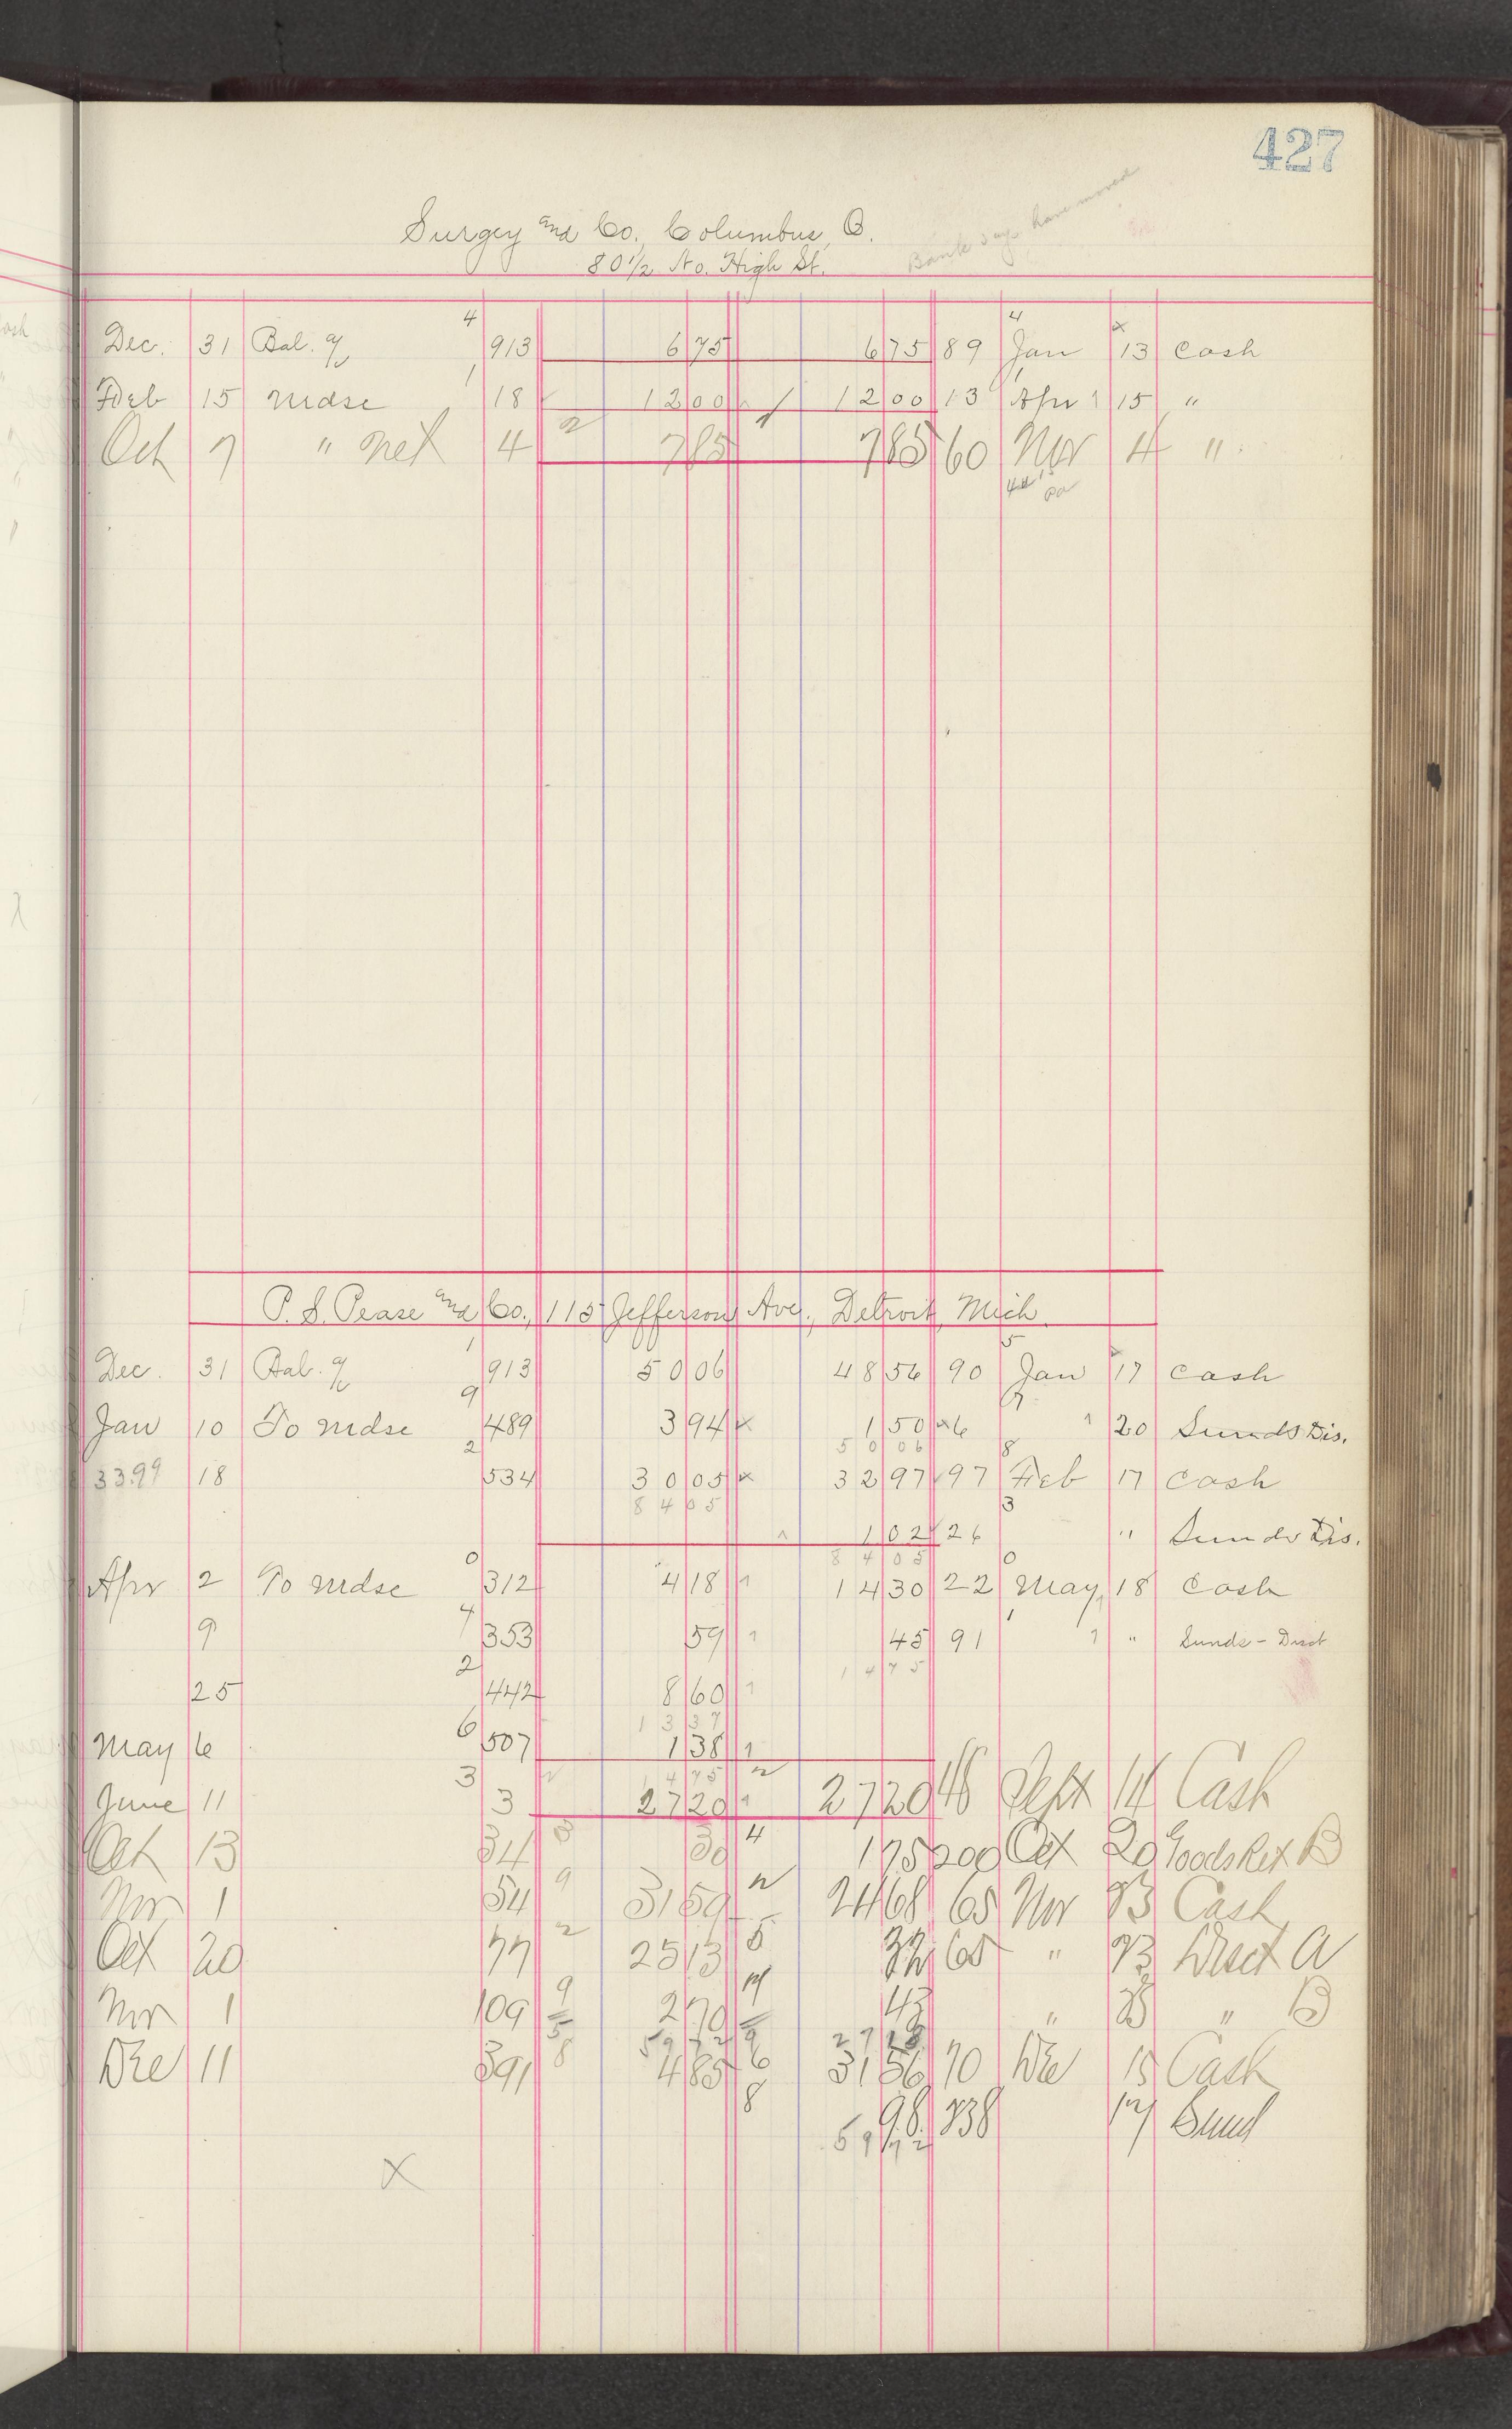 427
Surgey and Co. Columbus, O.
Bank says have moved
80 1/2 No. High St.
Dec. 31 Bal. 4 913 6 75 6 75 89 4 Jan 13 Cash
Feb 15 Mdse 1 18 12 00 12 00 13 1 Apr 15 "
Oct 7 " net 4 2 7 85 7 85 60 Nov 4 "
P. S. Pease and Co., 115 Jefferson Ave., Detroit, Mich.
Dec. 31 Bal. 1 913 50 06 48 56 90 5 Jan 17 Cash
Jan 10 To Mdse 9 489 3 94 1 50 6 20 Sunds Dis.
50 06
3399 18 2 534 30 05 32 97 97 8 Feb 17 Cash
84 05
1 02 26 3 " Sunds Dis.
84 05
Apr 2 To Mdse 0 312 4 18 14 30 22 0 May 18 Cash
9 4 353 59 45 91 1 " Sunds - Disct
14 75
25 2 442 8 60
13 37
May 6 6 507 1 38
14 75
June 11 3 3 27 20 27 20 46 Sept 14 Cash
Oct 13 34 3 30 4 1 75 200 Oct 20 Goods Ret B
Nov 1 54 9 31 59 24 68 65 Nov 23 Cash
Oct 20 77 2 25 13 5 32 65 " 23 Disct A
Nov 1 109 9 2 70 " " B
59 72
Dec 11 391 8 4 85 6 31 56 70 Dec 15 Cash
8 98 338 17 Sund
59 72
X